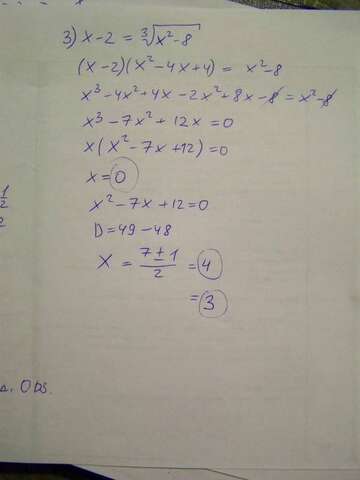 3) x-2 = ∛(x²-8)
(x-2)(x²-4x+4) = x²-8
x³-4x²+4x-2x²+8x-8=x²-8
x³-7x²+12x=0
x(x²-7x+12)=0
x=0
x²-7x+12=0
D=49-48
x = (7±1)/2 = 4
= 3
1/2